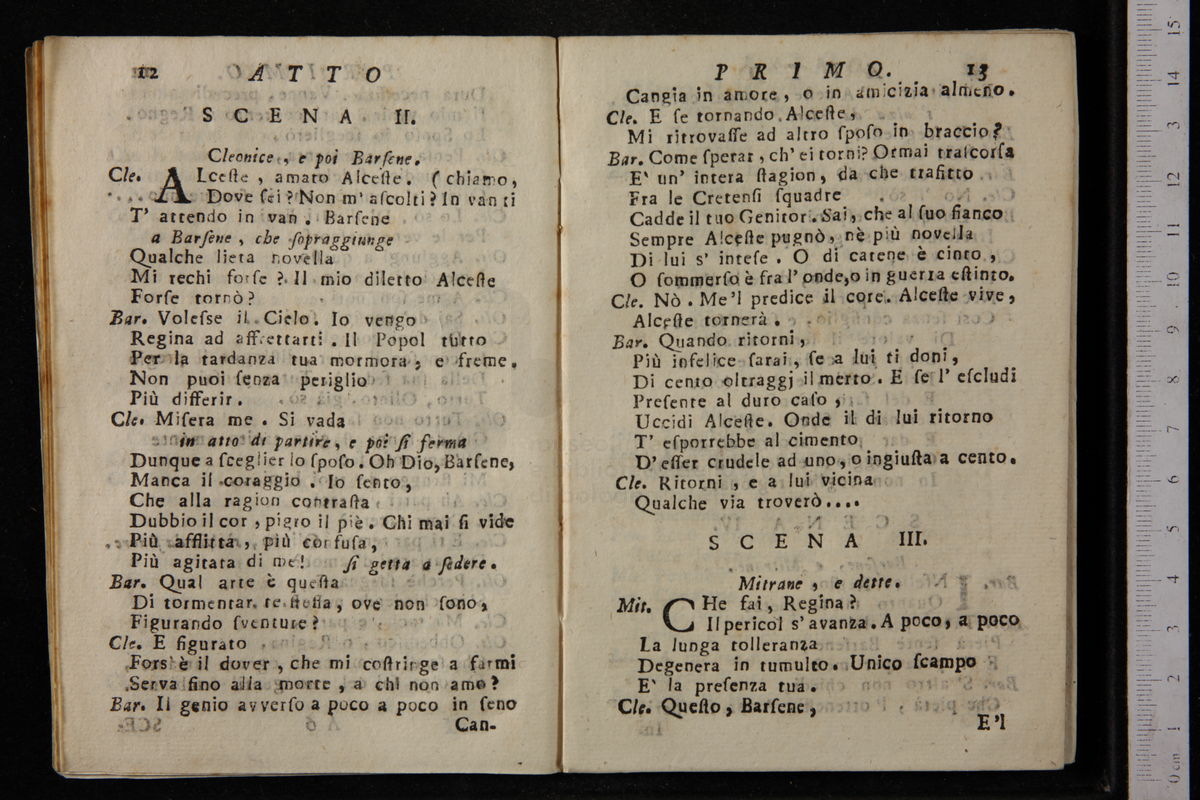 12 ATTO
SCENA II.
Cleonice, e poi Barſene.
Cle. ALceſte, amato Alceſte. (chiamo,
Dove ſei? Non m' aſcolti? In van ti
T' attendo in van. Barſene
a Barſene, che ſopraggiunge
Qualche lieta novella
Mi rechi forſe? Il mio diletto Alceſte
Forſe tornò?
Bar. Voleſse il Cielo. Io vengo
Regina ad affrettarti. Il Popol tutto
Per la tardanza tua mormora, e freme.
Non puoi ſenza periglio
Più differir.
Cle. Miſera me. Si vada
in atto di partire, e poi ſi ferma
Dunque a ſceglier lo ſpoſo. Oh Dio, Barſene,
Manca il coraggio. Io ſento,
Che alla ragion contraſta
Dubbio il cor, pigro il piè. Chi mai ſi vide
Più afflitta, più confuſa,
Più agitata di me! ſi getta a ſedere.
Bar. Qual arte è queſta
Di tormentar te ſteſſa, ove non ſono,
Figurando ſventure?
Cle. E figurato
Fors' è il dover, che mi coſtringe a farmi
Serva fino alla morte, a chi non amo?
Bar. Il genio avverſo a poco a poco in ſeno
Can-
PRIMO. 13
Cangia in amore, o in amicizia almeno.
Cle. E ſe tornando Alceſte,
Mi ritrovaſſe ad altro ſpoſo in braccio?
Bar. Come ſperar, ch' ei torni? Ormai traſcorſa
E' un' intera ſtagion, da che trafitto
Fra le Cretenſi ſquadre
Cadde il tuo Genitor. Sai, che al ſuo fianco
Sempre Alceſte pugnò, nè più novella
Di lui s' inteſe. O di catene è cinto,
O ſommerſo è fra l' onde, o in guerra eſtinto.
Cle. Nò. Me 'l predice il core. Alceſte vive,
Alceſte tornerà.
Bar. Quando ritorni,
Più infelice ſarai, ſe a lui ti doni,
Di cento oltraggj il merto. E ſe l' eſcludi
Preſente al duro caſo,
Uccidi Alceſte. Onde il di lui ritorno
T' eſporrebbe al cimento
D' eſſer crudele ad uno, o ingiuſta a cento.
Cle. Ritorni, e a lui vicina
Qualche via troverò....
SCENA III.
Mitrane, e dette.
Mit. CHe fai, Regina?
Il pericol s' avanza. A poco, a poco
La lunga tolleranza
Degenera in tumulto. Unico ſcampo
E' la preſenza tua.
Cle. Queſto, Barſene,
E'l